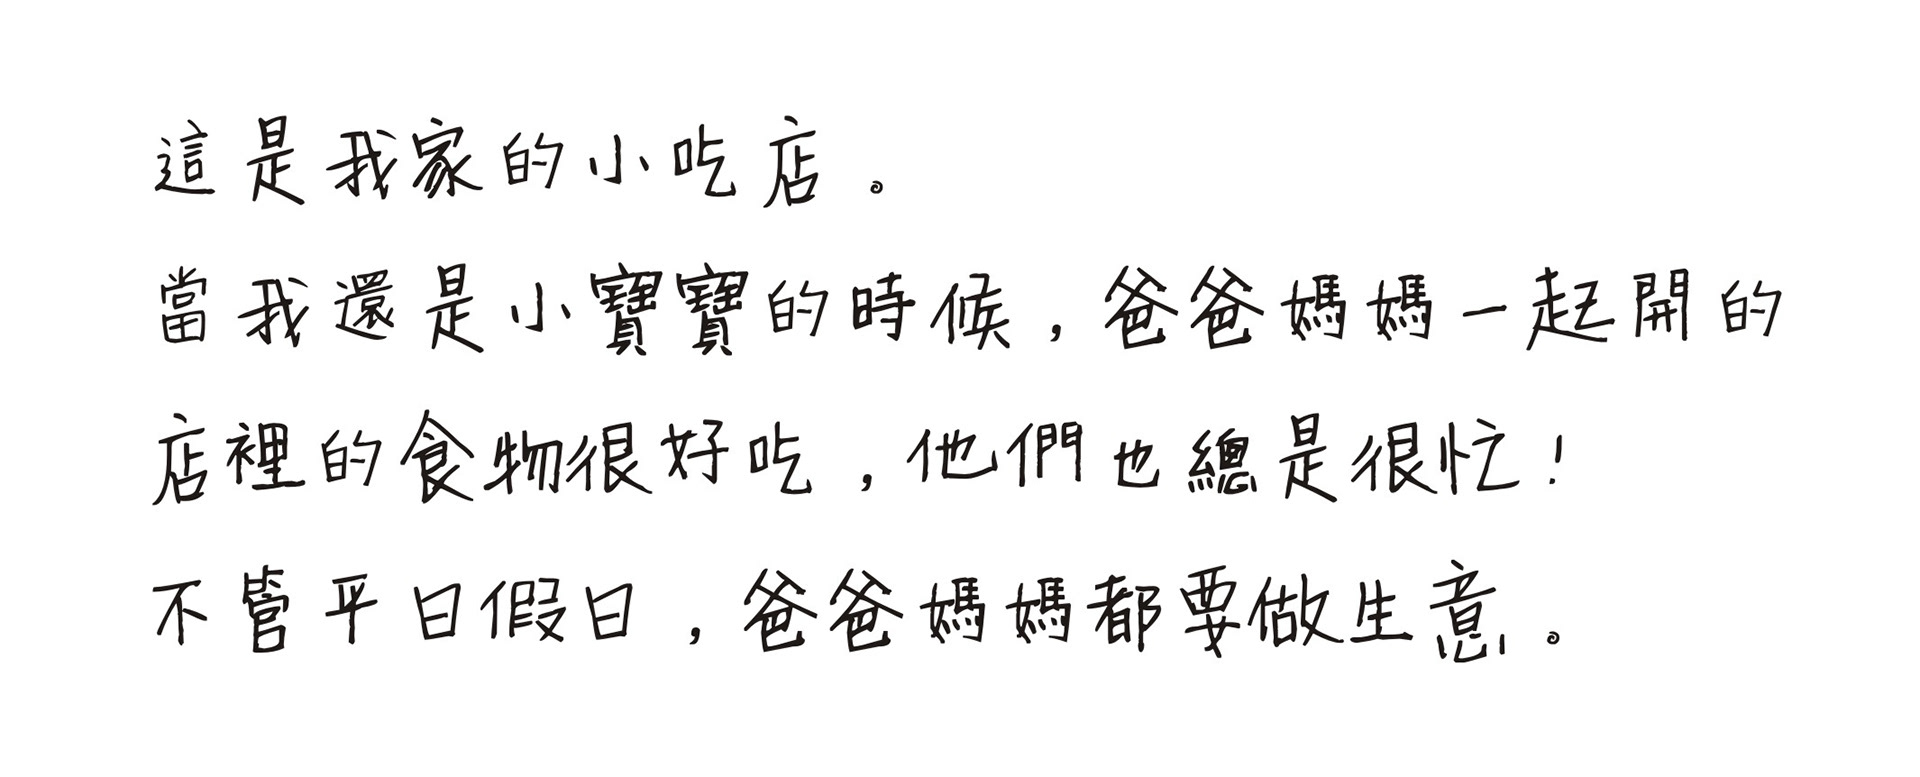 這是我家的小吃店。
當我還是小寶寶的時候，爸爸媽媽一起開的
店裡的食物很好吃，他們也總是很忙！
不管平日假日，爸爸媽媽都要做生意。